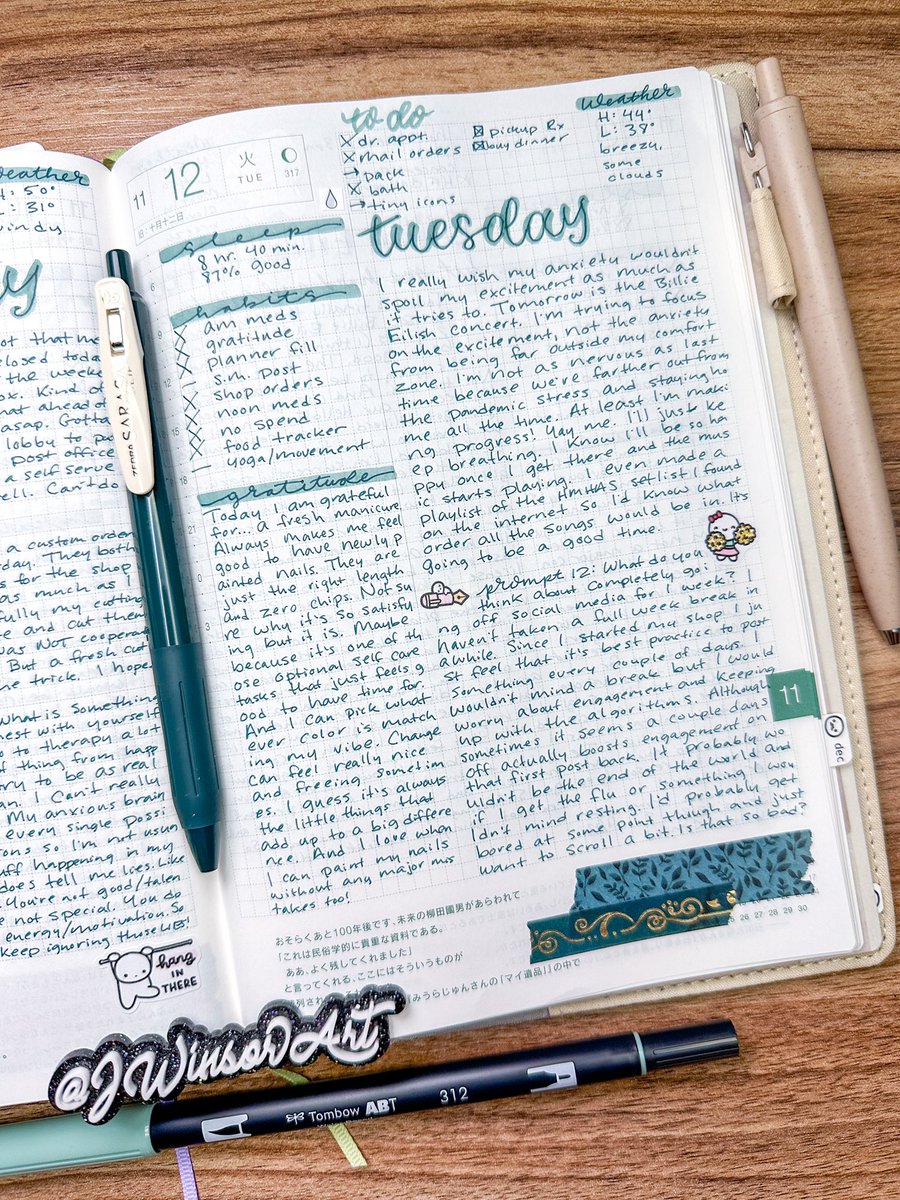 Weather
H: 50°
L: 31°
windy
y
ot that me
closed toda
the weeks
ok. Kind o
hat ahead o
asap. Gotta
lobby to pu
post office
a self serve
ell. Can't do
a custom order
rday. They both
s for the shop
as much as I
fully my cutting
e and cut them
was NOT coopera
But a fresh cut
he trick. I hope
What is something
nest with yourself
o to therapy a lot
f thing from happ
try to be as real
an. I can't really
My anxious brain
every single possi
ons so I'm not usua
uff happening in my
does tell me lies. Like
You're not good/talen
e not special. You do
energy/motivation. So
keep ignoring those lies!
hang
IN
THERE
11
12
火
TUE
317
旧:十月十二日
to do
x dr. appt.
x mail orders
→ pack
x bath
→ tiny icons
☒ pickup Rx
☒ buy dinner
Weather
H: 44°
L: 38°
breezy,
some
clouds
sleep
8 hr. 40 min.
87% good
habits
am meds
gratitude
planner fill
s.m. post
shop orders
noon meds
no spend
food tracker
yoga/movement
gratitude
Today I am grateful
for... a fresh manicure.
Always makes me feel
good to have newly p
ainted nails. They are
just the right length
and zero chips. Not su
re why it's so satisfy
ing but it is. Maybe
because it's one of th
ose optional self care
tasks that just feels g
ood to have time for.
And I can pick what
ever color is match
ing my vibe. Change
can feel really nice
and freeing sometim
es. I guess it's always
the little things that
add up to a big differe
nce. And I love when
I can paint my nails
without any major mis
takes too!
tuesday
I really wish my anxiety wouldn't
spoil my excitement as much as
it tries to. Tomorrow is the Billie
Eilish concert. I'm trying to focus
on the excitement, not the anxiety
from being far outside my comfort
zone. I'm not as nervous as last
time because we're farther out from
the pandemic stress and staying ho
me all the time. At least I'm maki
ng progress! Yay me. I'll just ke
ep breathing. I know I'll be so ha
ppy once I get there and the mus
ic starts playing. I even made a
playlist of the HMHAS setlist I found
on the internet so I'd know what
order all the songs would be in. Its
going to be a good time.
prompt 12: What do you
think about completely goi
ng off social media for 1 week? I
haven't taken a full week break in
awhile. Since I started my shop I ju
st feel that it's best practice to post
something every couple of days. I
wouldn't mind a break but I would
worry about engagement and keeping
up with the algorithms. Although
sometimes it seems a couple days
off actually boosts engagement on
that first post back. It probably wo
uldn't be the end of the world and
if I get the flu or something I wou
ldn't mind resting. I'd probably get
bored at some point though and just
want to scroll a bit. Is that so bad?
11
dec
25 26 27 28 29 30
おそらくあと100年後です、未来の柳田國男があらわれて
「これは民俗学的に貴重な資料である。
ああ、よく残してくれました」
と言ってくれる、ここにはそういうものが
みうらじゅんさんの「マイ遺品」』の中で
ZEBRA SARASA
@JWinsorArt
Tombow ABT 312